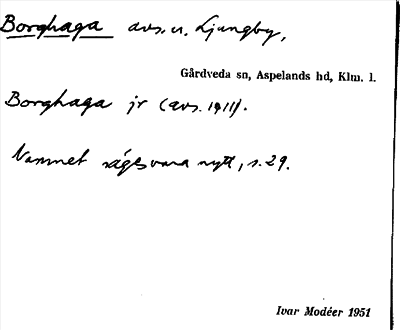 Borghaga avs. u. Ljungby,
Gårdveda sn, Aspelands hd, Klm. l.
Borghaga jr (avs. 1911).
Namnet säges vara nytt, s. 29.
Ivar Modéer 1951